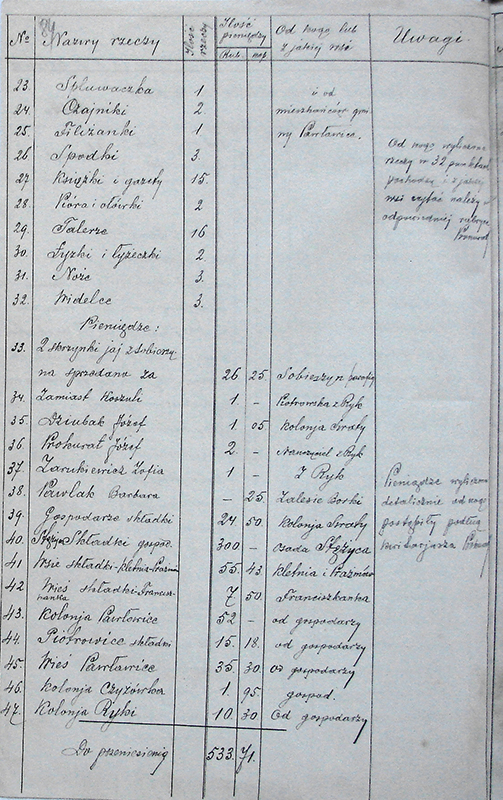 84
№ Nazwy rzeczy Ilość rzeczy Ilość pieniędzy Rub. kop. Od kogo lub z jakiej wsi Uwagi.
23. Spluwaczka 1 i od
24. Czajniki 2 mieszkańców gmi
25. Filiżanki 1 ny Pawłowice.
26 Spodki 3.
27 Książki i gazety 15.
28. Pióra i ołówki 2
29. Talerze 16
30. Łyżki i łyżeczki 2
31. Noże 3.
32. Widelce 3.
Od kogo
rzeczy w 32 punktach
pochodzą i z jakiej
wsi czytać należy w
odpowiedniej rubryce
Pieniądze:
33. 2 skrzynki jaj z Sobieszy
na sprzedano za 26 25. Sobieszyn
34. Zamiast koszuli 1 - Piotrowska z Ryk
35. Dziubak Józef 1 05 kolonja Swaty
36. Prokurat Józef 2 - z Ryk
37. Zarukiewicz Zofia 1 - Z Ryk
38. Pawlak Barbara - 25. Zalesie Borki
39. Gospodarze składki 24 50. kolonja Swaty
40. Stężyca Składki gospod. 300 - osada Stężyca
41 Wsie składki - kletnia - Prażmów 55. 43. kletnia i Prażmów
42 Wieś składki - Francisz-
kanka 7 50. Franciszkanka
43. Kolonja Pawłowice 52 - od gospodarzy
44. Piotrowice składki 15. 18. od gospodarzy
45. Wieś Pawłowice 35. 30. od gospodarzy
46. Kolonja Czyżówka 1. 95 gospod.
47. Kolonja Ryki 10. 30 Od gospodarzy
Pieniądze
detalicznie od kogo
postąpiły podług
Do przeniesienia 533. 71.